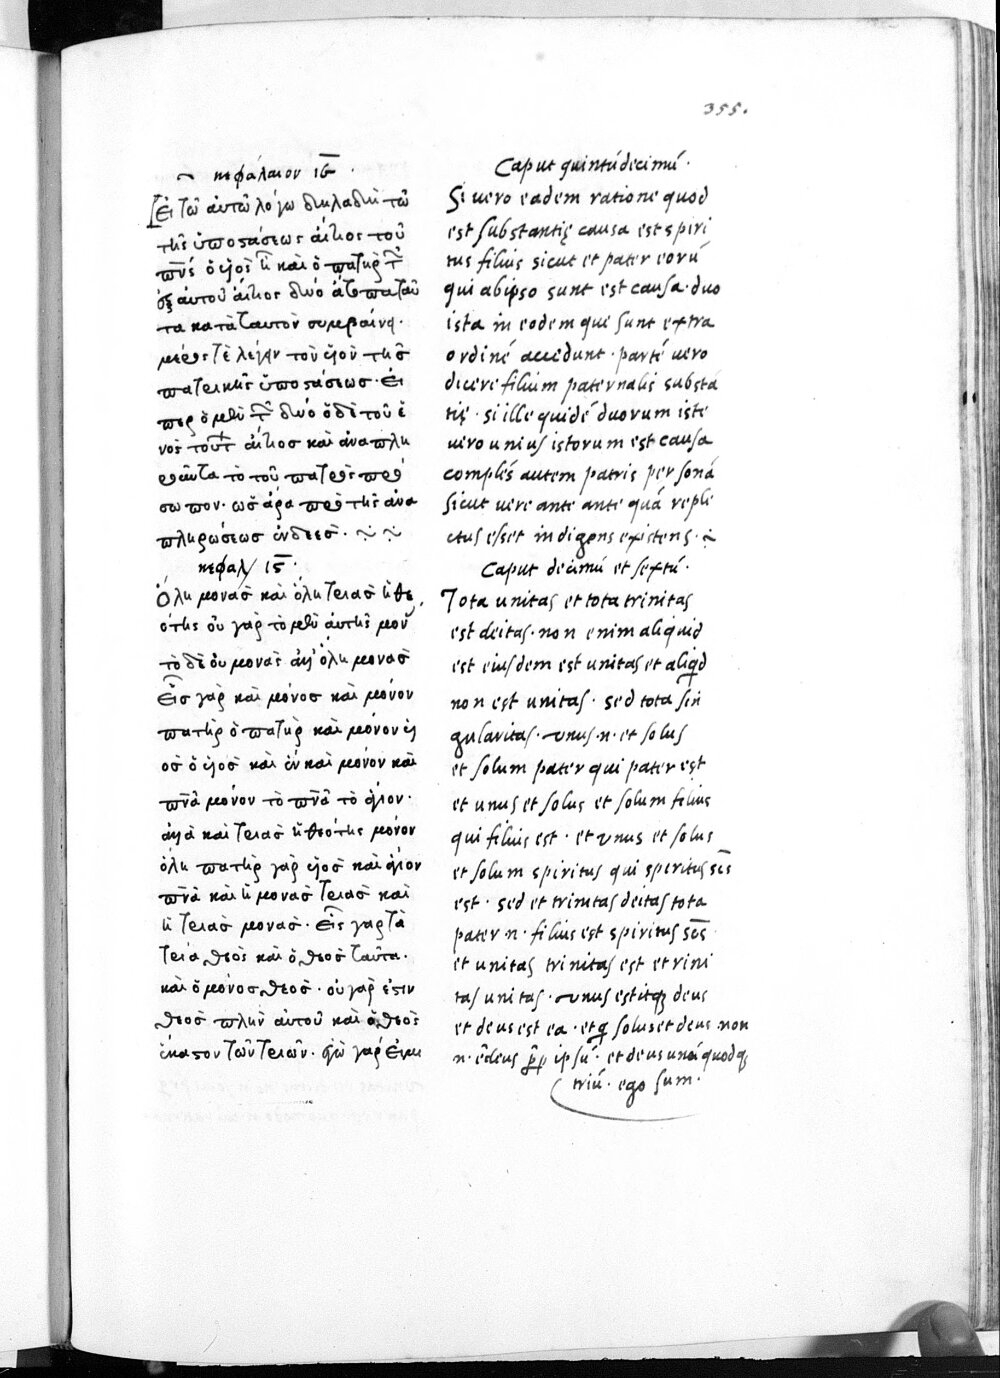 355.
κεφάλαιον ιε̅ ·
Εἰ τῶ αὐτῶ λόγω δηλαδὴ τῶ
τῆς ὑποστάσεως αἴτιος τοῦ
πν̅ς ὁ υἱὸς καὶ ὁ πατὴρ τ
ἐξ αὐτοῦ αἴτιος δύο ἄτοπα ταῦ
τα κατὰ ταυτὸν συμβαίνει·
μέρος τὲ λέγειν τὸν υἱὸν τῆς
πατρικῆς ὑποστάσεως· εἴ
περ ὁ μὲν δύο ὁ δὲ τοῦ ἑ
νὸς τούτ αἴτιος καὶ ἀναπλη
ροῦντα τὸ τοῦ πατρὸς πρό
σωπον· ὡς ἄρα πρὸ τῆς ἀνα
πληρώσεως ἐνδεές·
κεφαλ/ ις̅ ·
Ὅλη μονὰς καὶ ὅλη τριὰς ἡ θε
ότης οὐ γὰρ τὸ μὲν αὐτῆς μον
τὸ δὲ οὐ μονὰς ἀλλ' ὅλη μονὰς
Εἷς γὰρ καὶ μόνος καὶ μόνον
πατὴρ ὁ πατὴρ καὶ μόνον υἱ
ος ὁ υἱὸς καὶ ἓν καὶ μόνον καὶ
πν̅α μόνον τὸ πν̅α τὸ ἅγιον·
ἀλλὰ καὶ τριὰς ἡ θεότης μόνον
ὅλη πατὴρ γὰρ υἱὸς καὶ ἅγιον
πν̅α καὶ ἡ μονὰς τριὰς καὶ
ἡ τριὰς μονὰς· εἷς γὰρ τὰ
τρία θεὸς καὶ ὁ θεὸς ταῦτα·
καὶ ὁ μόνος θεὸς· οὐ γὰρ ἐστιν
θεὸς πλὴν αὐτοῦ καὶ ὁ θεὸς
ἕκαστον τῶν τριῶν· ἐγὼ γάρ εἰμι
Caput quintúdecimú·
Si uero eadem ratione quod
est substantię causa est spiri
tus filius sicut et pater eorú
qui ab ipso sunt est causa· duo
ista in eodem que sunt extra
ordiné accidunt· parté uero
dicere filium paternalis substá
tię· si ille quidé duorum iste
uero unius istorum est causa
complés autem patris personá
sicut uere ante ante quá reple
ctus esset indigens existens·
Caput decimú et sextú·
Tota unitas et tota trinitas
est deitas· non enim aliquid
est eiusdem est unitas et aliqd
non est unitas· sed tota sin
gularitas· unus·n· et solus
et solum pater qui pater est
et unus et solus et solum filius
qui filius est· et unus et solus
et solum spiritus qui speritus scs̅
est· sed et trinitas deitas tota
pater n· filius est spiritus scs̅
et unitas trinitas est et rini
tas unitas· unus estitq; deus
et deus est ea· et q solus et deus non
n· e̅ deus pp̅ ipsú· et deus unúquodq;
triú· ego sum·